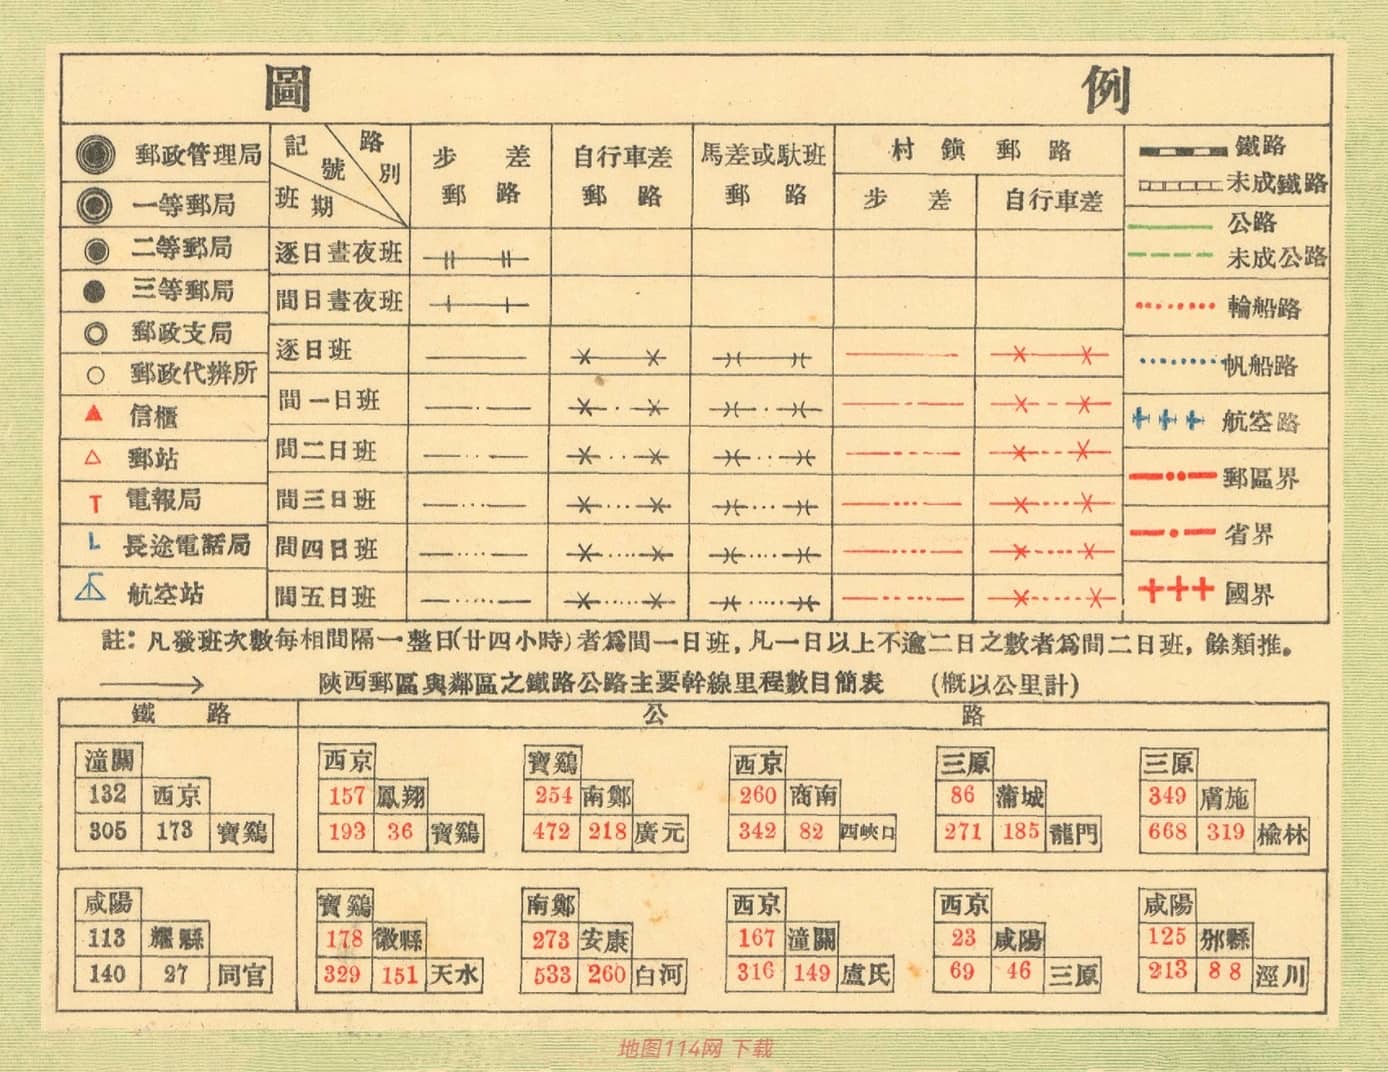 圖 例
郵政管理局
一等郵局
二等郵局
三等郵局
郵政支局
郵政代辦所
信櫃
郵站
T 電報局
L 長途電話局
航空站
記號 路別 班期
步差郵路
自行車差郵路
馬差或馱班郵路
村鎮郵路
步差
自行車差
逐日晝夜班
間日晝夜班
逐日班
間一日班
間二日班
間三日班
間四日班
間五日班
鐵路
未成鐵路
公路
未成公路
輪船路
帆船路
航空路
郵區界
省界
國界
註：凡發班次數每相間隔一整日(廿四小時)者為間一日班，凡一日以上不逾二日之數者為間二日班，餘類推。
陝西郵區與鄰區之鐵路公路主要幹線里程數目簡表 (概以公里計)
鐵路 公路
潼關
132 西京
305 173 寶鷄
西京
157 鳳翔
193 36 寶鷄
寶鷄
254 南鄭
472 218 廣元
西京
260 商南
342 82 西峽口
三原
86 蒲城
271 185 龍門
三原
349 膚施
668 319 榆林
咸陽
113 耀縣
140 27 同官
寶鷄
178 徽縣
329 151 天水
南鄭
273 安康
533 260 白河
西京
167 潼關
316 149 盧氏
西京
23 咸陽
69 46 三原
咸陽
125 邠縣
213 88 涇川
地图114网 下载